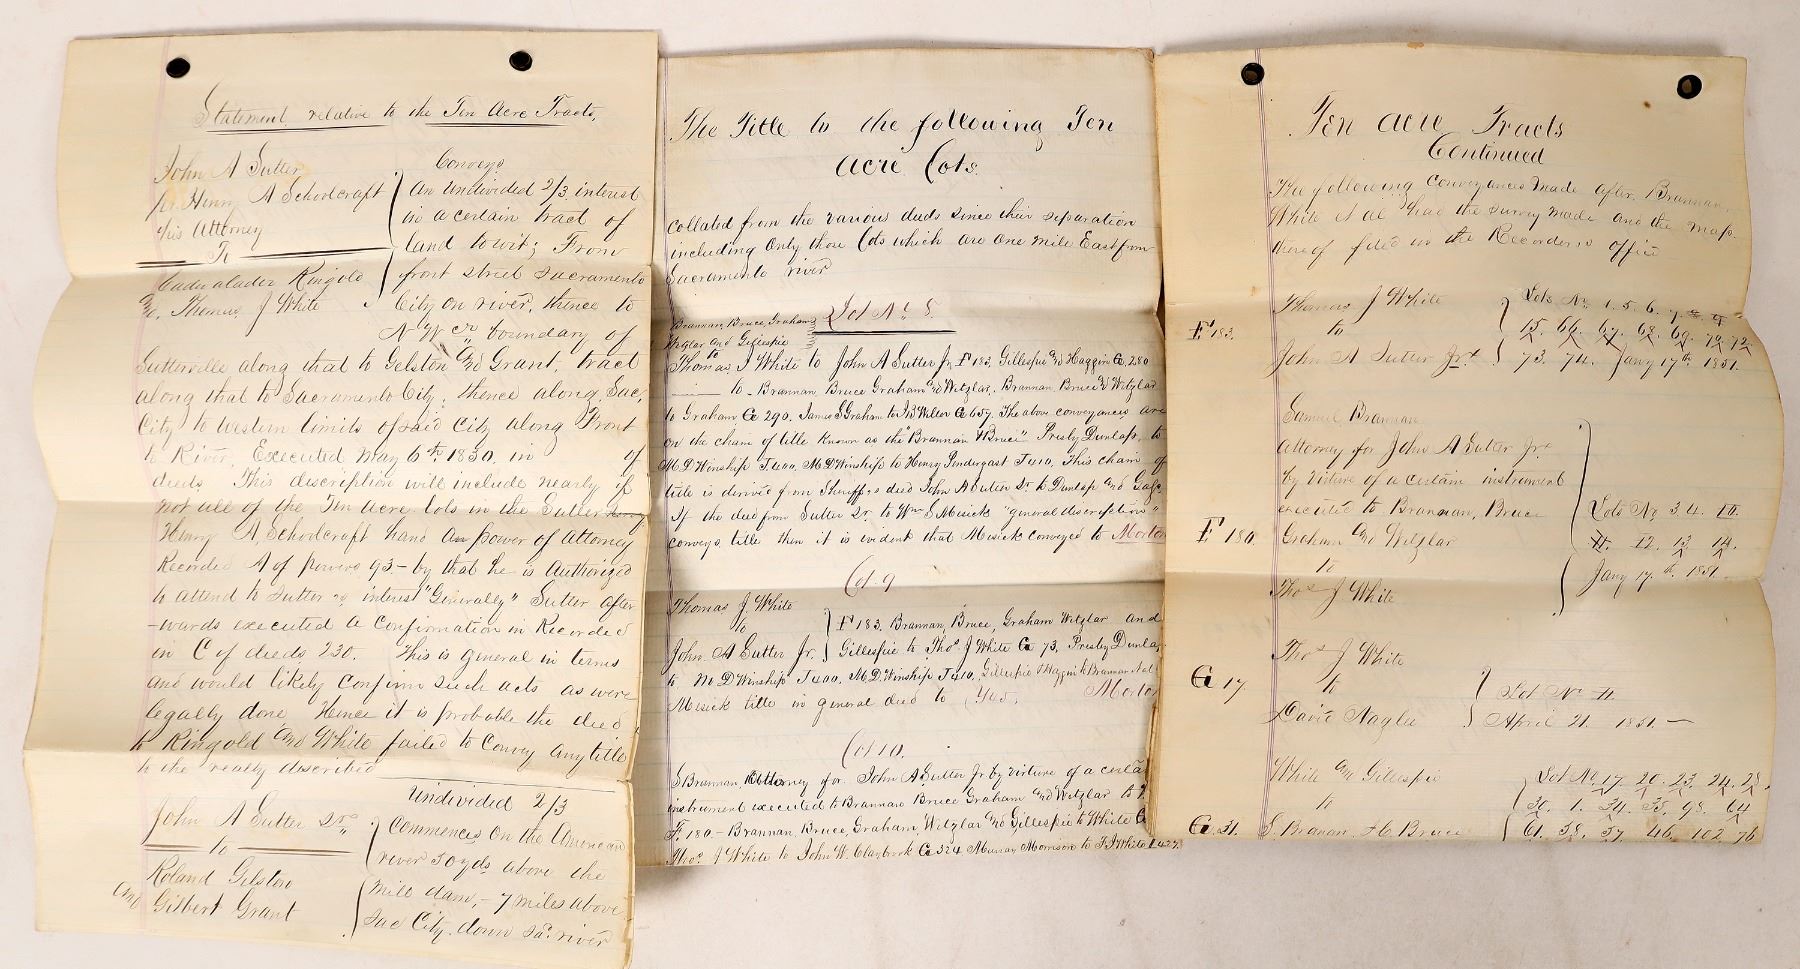 Statement relative to the Ten Acre Tracts,
John A Sutter
pr. Henry A Schorlcraft
his Atttorney
To
Cadwalader Ringold
and Thomas J White
Conveys
An undivided 2/3 interest
in a certain tract of
land to wit; From
front street Sacramento
City on river, thence to
N W Cr boundary of
Sutterville along that to Gelston and Grant, tract
along that to Sacramento City, thence along Sac,
City to western limits of said City along Front
to River, Executed May 6th 1850. in of
deeds. This description will include nearly if
not all of the Ten acre lots in the Sutter
Henry A, Schorlcraft had a power of Attorney
Recorded A of powers 93 - by that he is Authorized
to attend to Sutter interest "Generally" Sutter after
-wards executed a Confirmation in Recorded
in C of deeds 230. This is general in terms
and would likely Confirm such acts as were
legally done, Hence it is probable the deed
to Ringold and White failed to Convey any title
to the realty described
John A Sutter Sr
to
Roland Gelston
and Gilbert Grant
Undivided 2/3
Commences on the American
river 50 yds above the
mill dam, - 7 miles above
Sac City. down Sac. river
The Title to the following Ten
acre Lots.
collated from the various deeds since their separation
including Only those Lots which are One mile East from
Sacramento river
Lot No. 8.
Brannan, Bruce, Graham
Wetzlar and Gillespie
to
Thomas J White to John A Sutter Jr, F 183. Gillespie and Haggin G. 280
to Brannan Bruce Graham and Wetzlar, Brannan Bruce and Wetzlar
to Graham G 290. James S Graham to J B Wilter G 657. The above conveyances are
on the chain of title known as the "Brannan & Bruce" Presby Dunlap, to
M. D Winship J 400, M D Winship to Henry Pendergast J 410. This chain of
title is derived from Sheriffs deed John A Sutter Sr to Dunlap and Gass
If the deed from Sutter Sr. to Wm S Mesick "general description"
conveys title then it is evident that Mesick conveyed to Morton
Lot 9
Thomas J. White
to
John A Sutter Jr.
F 183. Brannan, Bruce, Graham Wetzlar and
Gillespie to Thos J White G 73. Presby Dunlap
to M D Winship J 400, M. D. Winship J 410, Gillespie & Haggin to Brannan
Mesick title in general deed to Yes. Morton
Lot 10.
S Brannan, Attorney for John A Sutter Jr by virtue of a certain
instrument executed to Brannan Bruce Graham and Wetzlar to
F 180 - Brannan, Bruce, Graham, Wetzlar and Gillespie to White G
Thos. J White to John W. Claybrook G 324 Murray Morrison to T J White
Ten Acre Tracts
Continued
The following Conveyances Made after Brannan,
White et al had the survey made and the map
thereof filed in the Recorders office
F 183.
Thomas J White
to
John A Sutter Jr
Lots No 1. 5. 6. 7. 8. 9.
15. 66. 67. 68. 69. 70. 72.
73. 74. Jany 17th 1851.
F 180.
Samuel Brannan
attorney for John A Sutter Jr
by virtue of a certain instrument
executed to Brannan, Bruce
Graham and Wetzlar
to
Thos J White
Lots No 3 4. 10.
11. 12. 13 14.
Jany 17. th. 1851.
G 17.
Thos J White
to
David Naglee
Lot No 11.
April 21. 1851. -
G. 31.
White and Gillespie
to
S. Brannan. & C. Bruce
Lot No. 17. 20. 23. 24. 28.
30. 1. 34. 35. 98. 64
61. 38. 37. 46. 102. 76